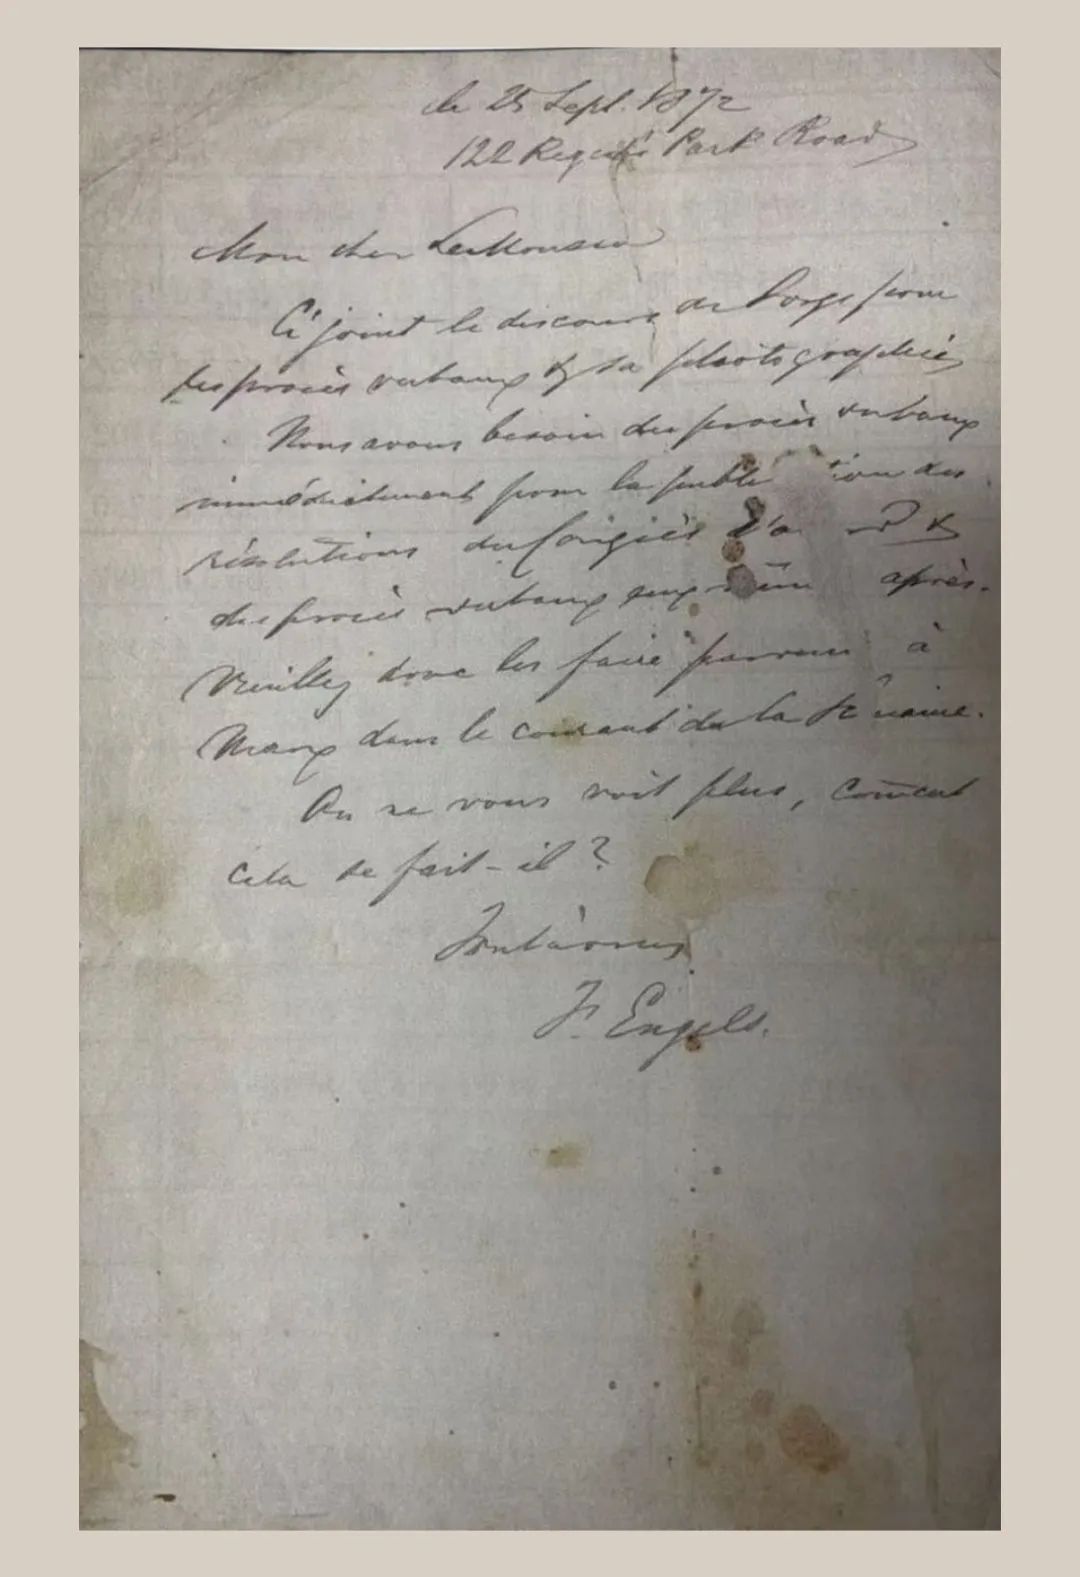 le 25 Sept. 1872
122 Regent's Park Road
Mon cher LeMoussu
Ci joint le discours de Sorge pour
les procès verbaux & sa photographie,
Nous avons besoin des procès verbaux
immédiatement pour la des
résolutions du Congrès &
des procès verbaux eux après.
Veuillez donc les faire parvenir à
Marx dans le courant de la
On ne vous voit plus, coment
cela se fait-il?
Tout à vous
F. Engels.